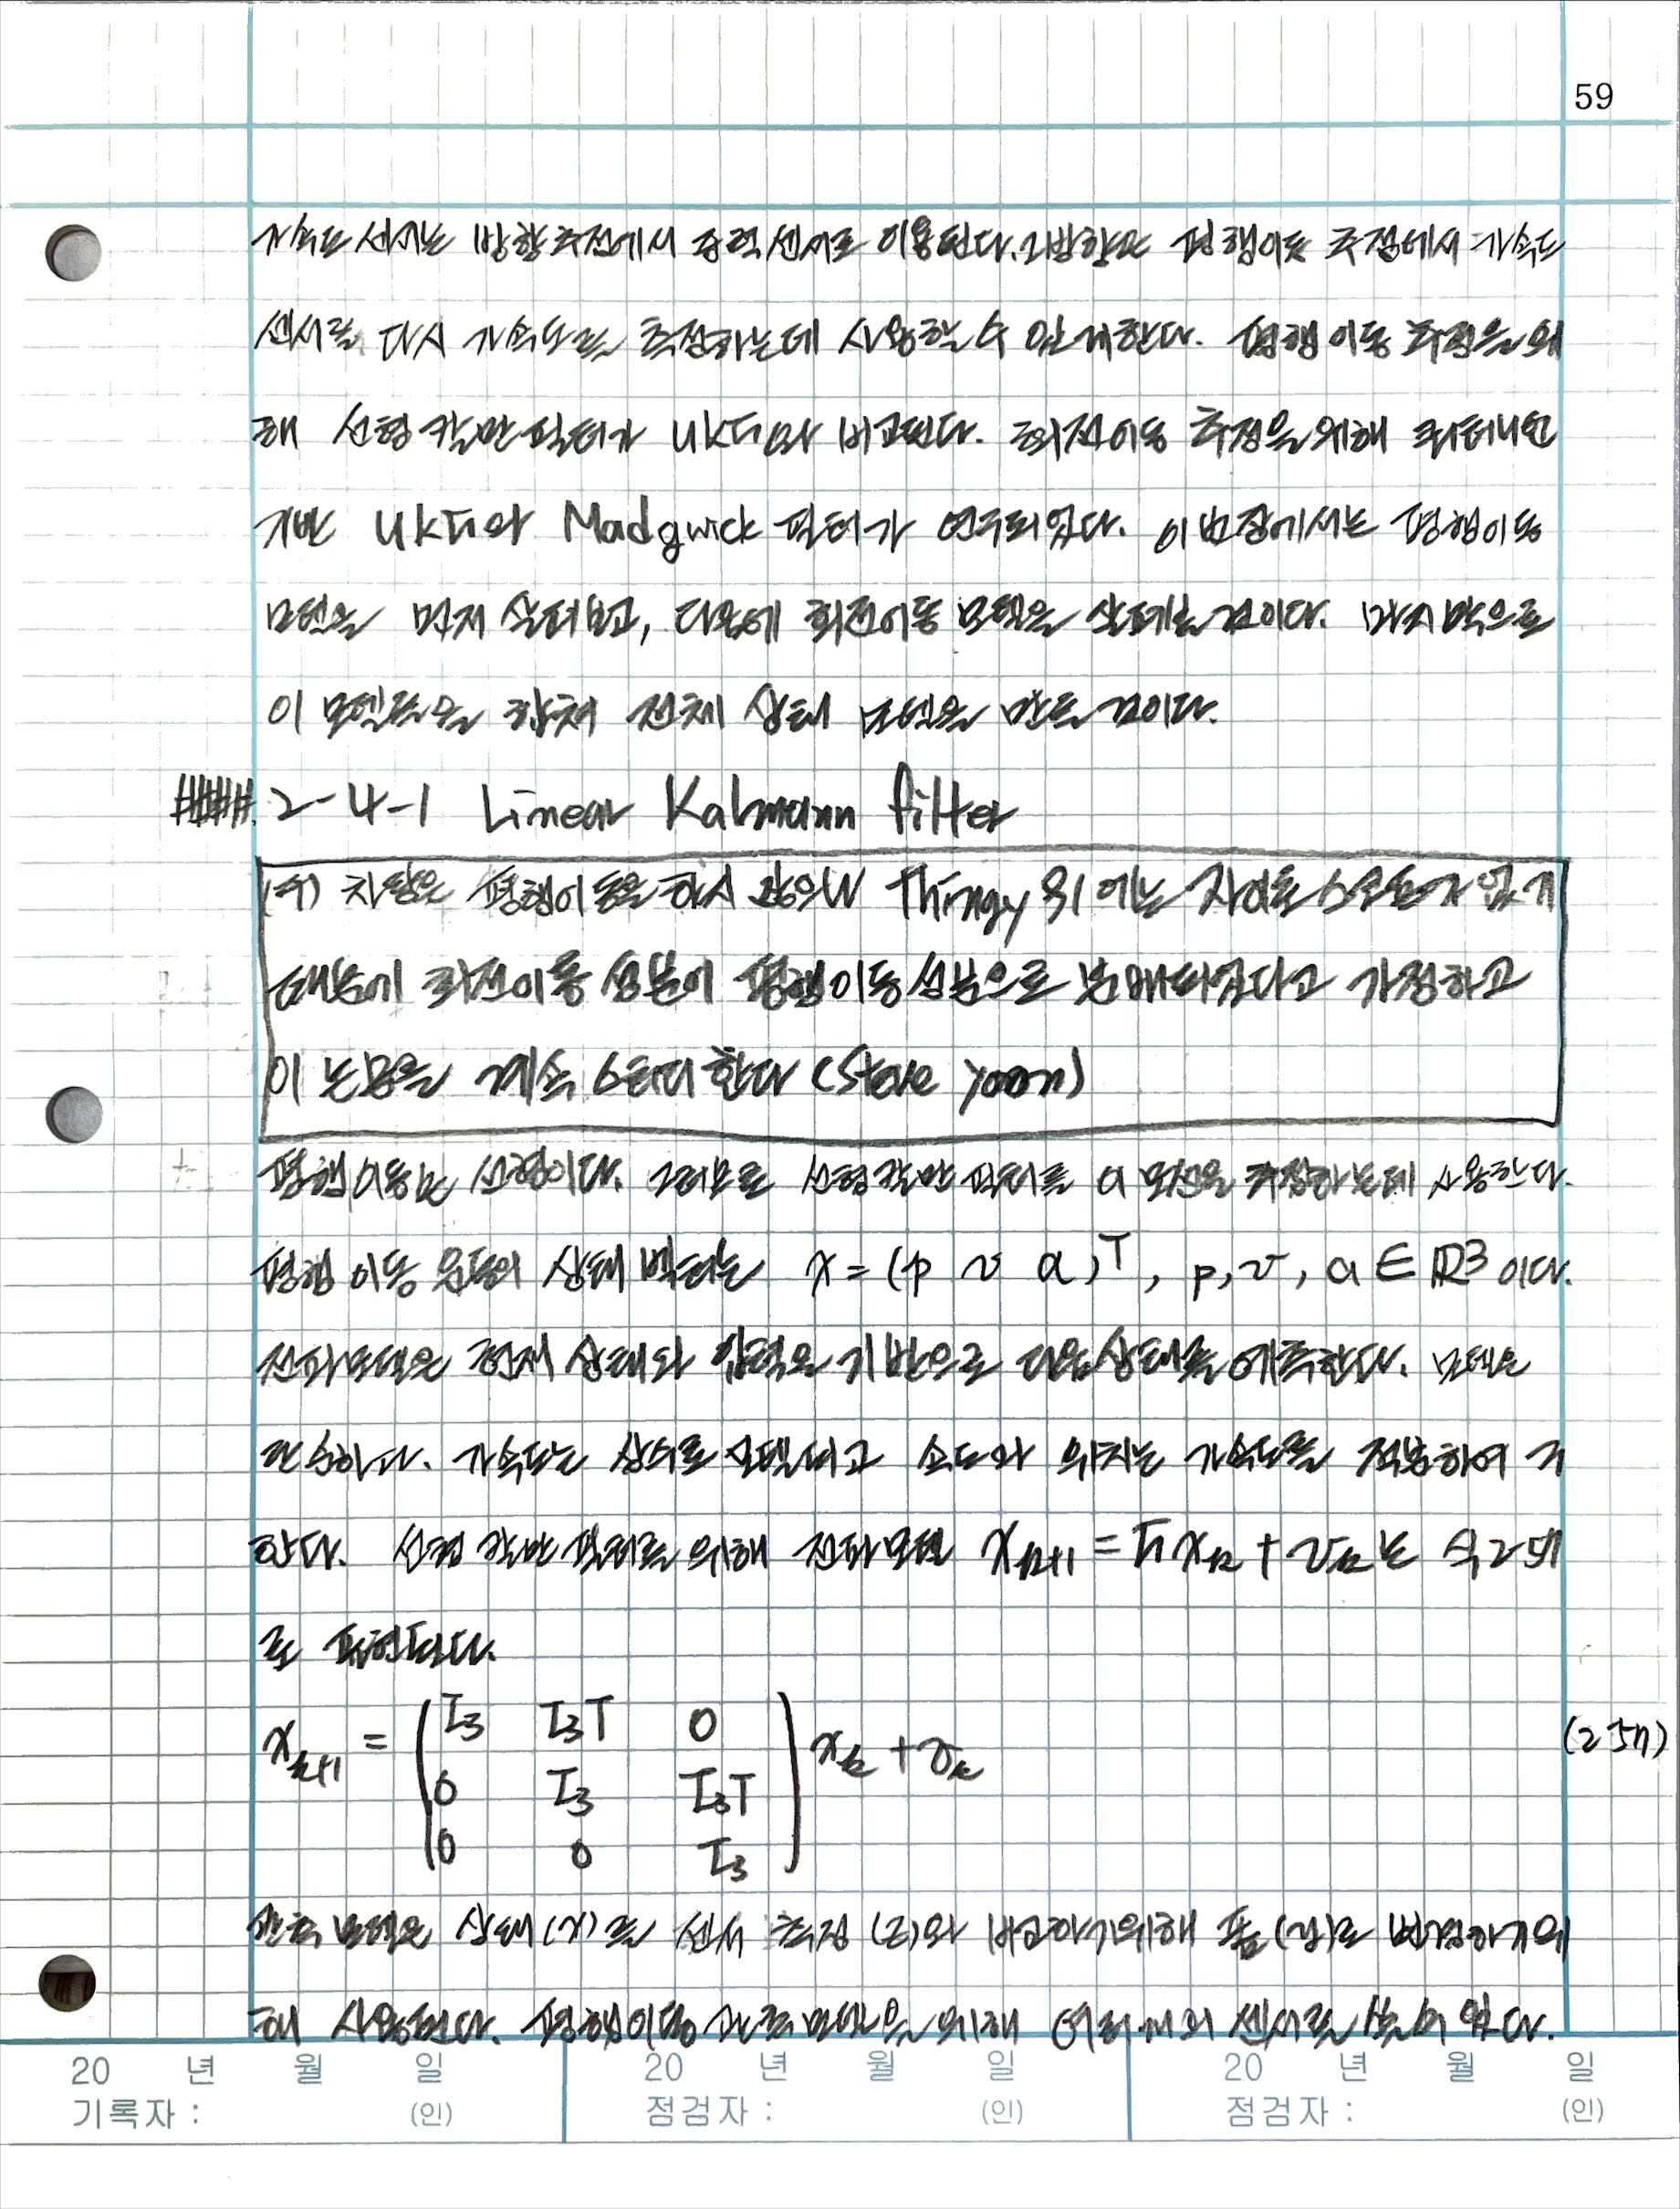 59
가속도 센서는 방향 추정에서 중력 센서로 이용된다. 그 방향은 평행이동 추정에서 가속도
센서를 다시 가속도를 측정하는데 사용할 수 있게 한다. 평행이동 추정을 위
해 선형 칼만 필터가 UKF와 비교된다. 회전이동 추정을 위해 쿼터니언
기반 UKF와 Madgwick 필터가 연구되었다. 이번 장에서는 평행이동
모델을 먼저 살펴보고, 다음에 회전이동 모델을 살펴볼 것이다. 마지막으로
이 모델들을 합쳐 전체 상태 모델을 만들 것이다.
####. 2-4-1 Linear Kalmann filter
(주) 차량은 평행이동을 하지 않으나 Thingy 위에는 자이로 스코프가 없기
때문에 회전이동 성분이 평행이동 성분으로 분배되었다고 가정하고
이 논문을 계속 스터디 한다 (Steve yoon)
평행이동은 선형이다. 그러므로 선형 칼만 필터를 이 모션을 추정하는데 사용한다.
평행 이동 운동의 상태 벡터는 x = (p v a)T, p, v, a ∈ R3 이다.
전파모델은 현재 상태와 입력을 기반으로 다음 상태를 예측한다. 모델은
단순하다. 가속도는 상수로 모델되고 속도와 위치는 가속도를 적분하여 구
한다. 선형 칼만 필터를 위해 전파 모델 xk+1 = Fxk + vk는 식 2.57
로 표현된다.
xk+1 = ( I3 I3T 0 ) xk + vk (2.57)
0 I3 I3T
0 0 I3
관측 모델은 상태(x)를 센서 측정(z)와 비교하기 위해 폼(y)로 변경하기 위
해 사용된다. 평행이동 관측 모델을 위해 여러 개의 센서를 쓸 수 있다.
20 년 월 일 20 년 월 일 20 년 월 일
기록자 : (인) 점검자 : (인) 점검자 : (인)